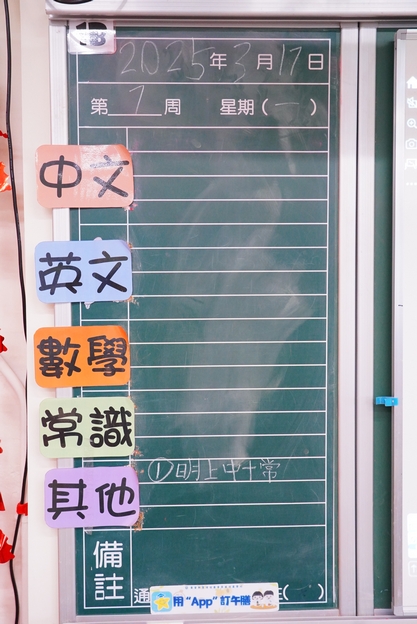 2025年3月17日
第7周 星期(一)
中文
英文
數學
常識
①明上中十常
其他
備註
通
(   )
用“App”訂午膳